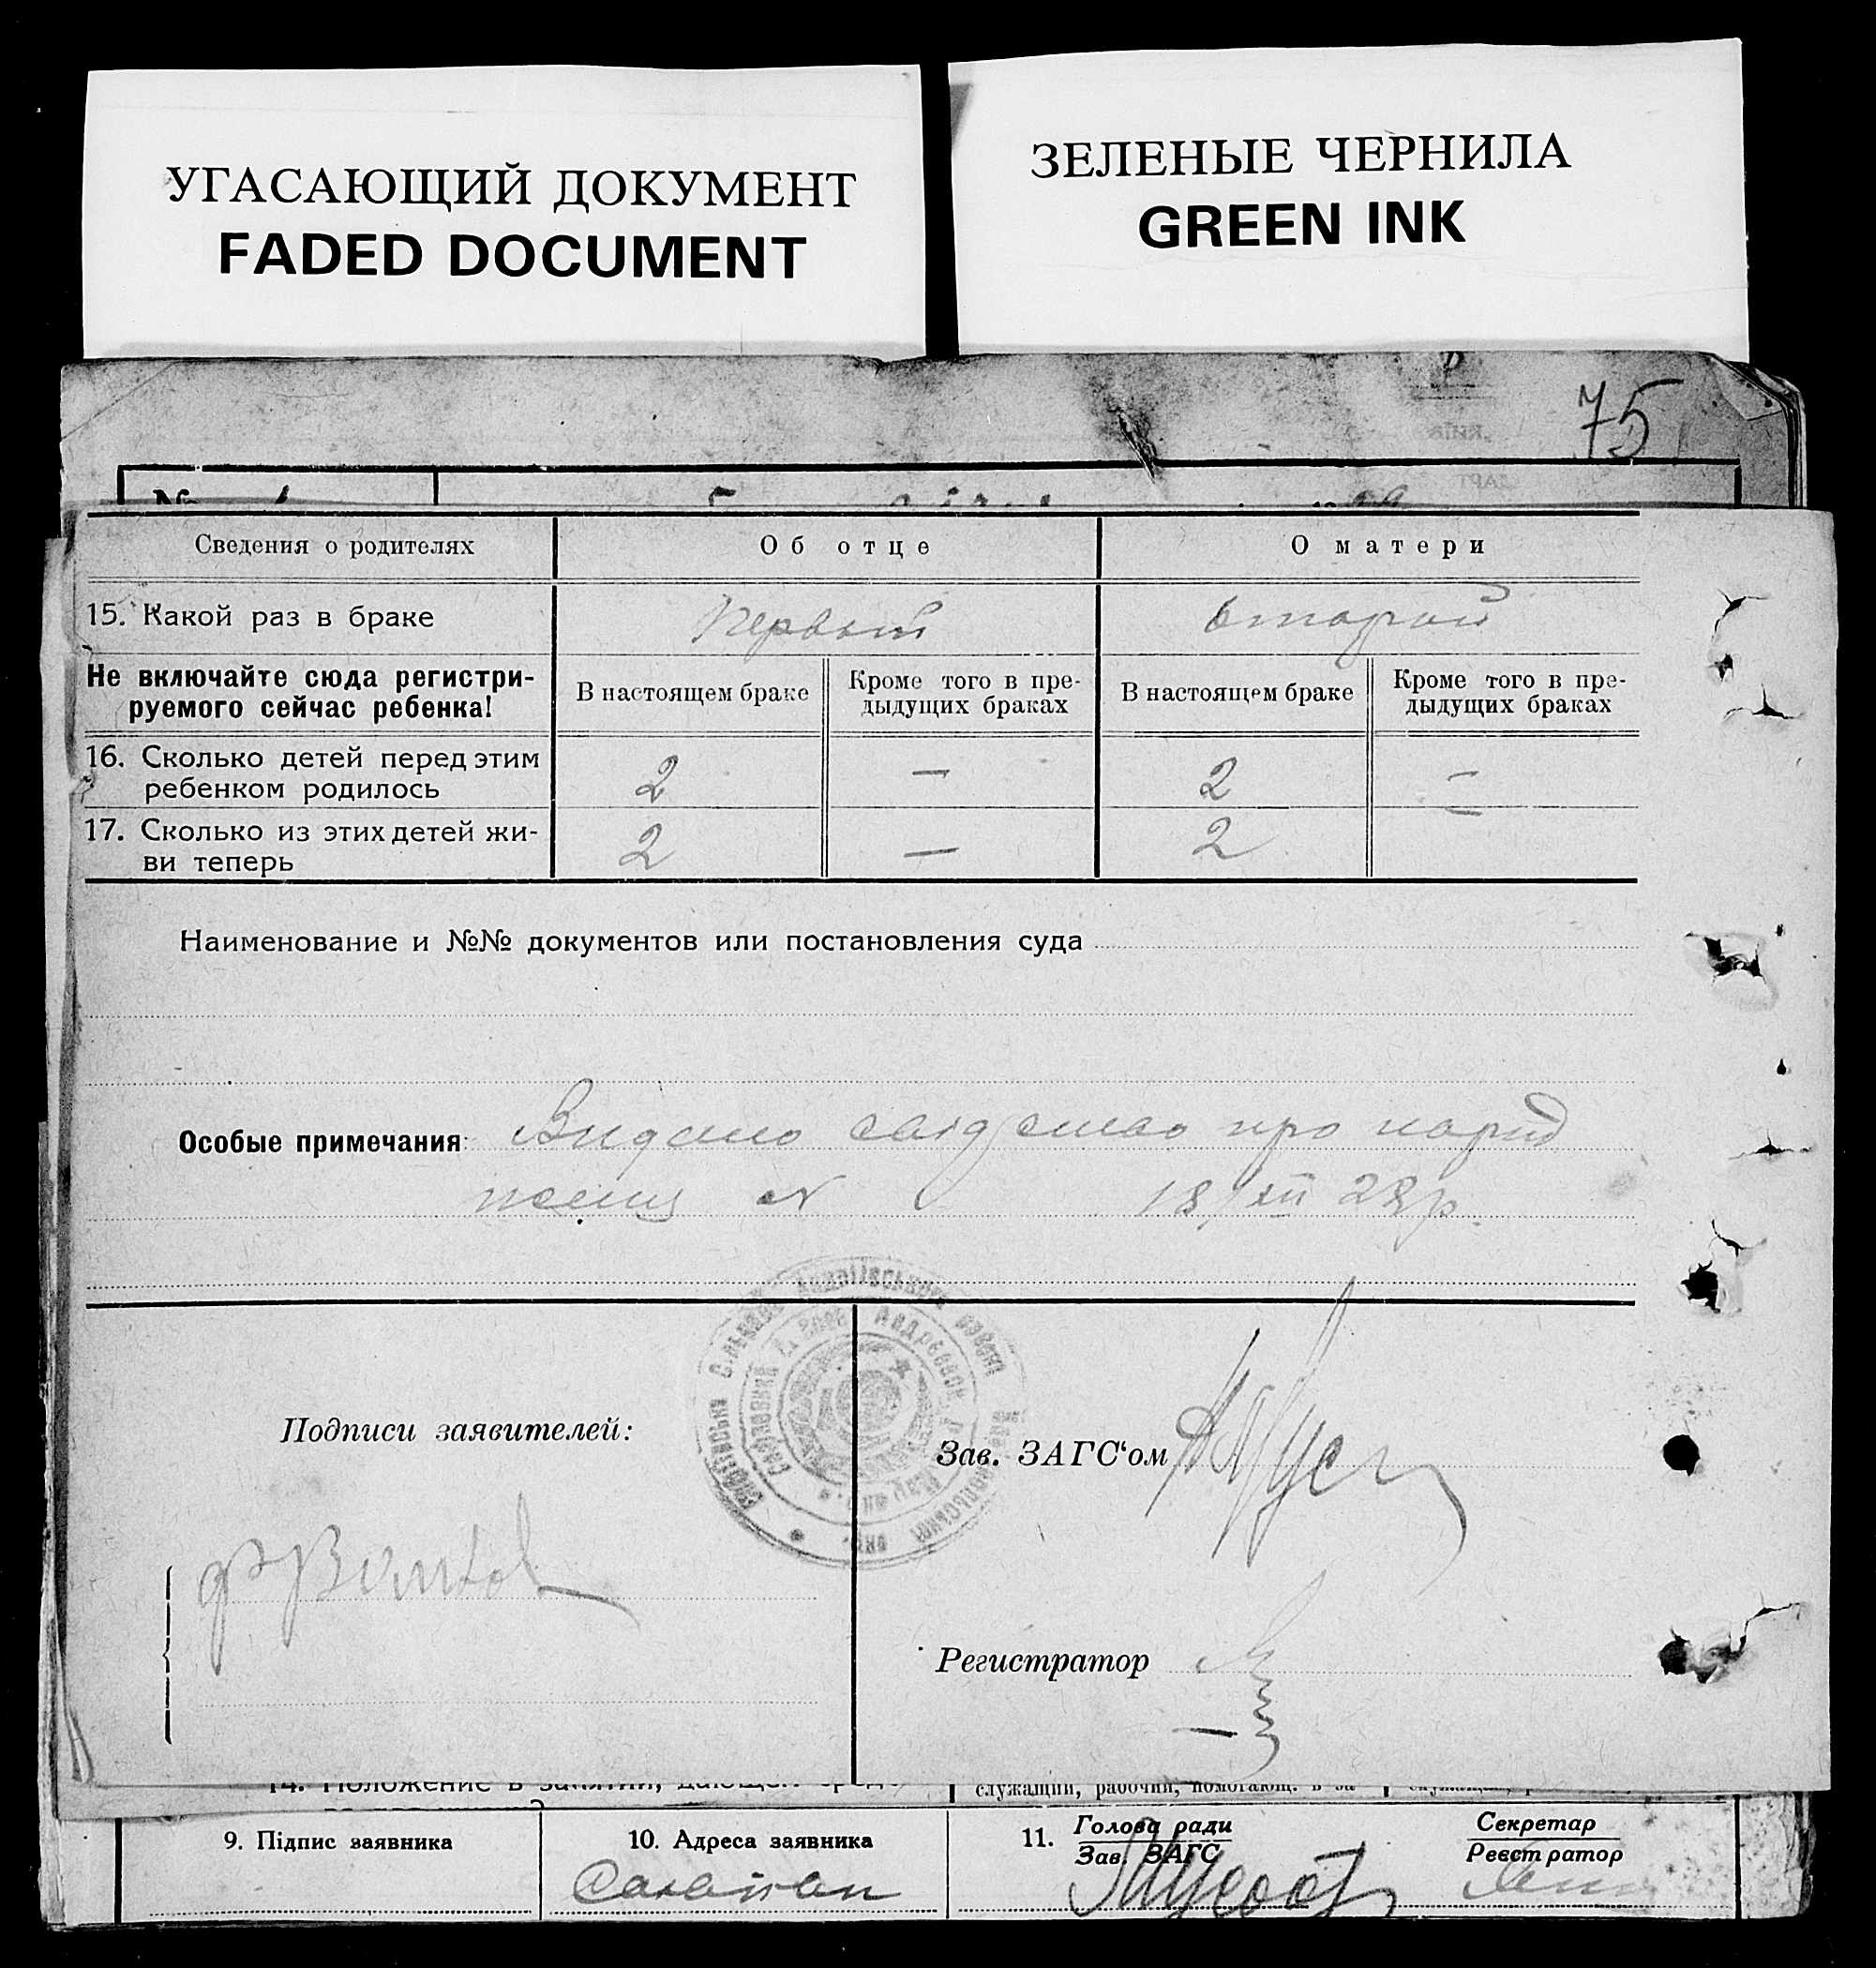 УГАСАЮЩИЙ ДОКУМЕНТ
FADED DOCUMENT
ЗЕЛЕНЫЕ ЧЕРНИЛА
GREEN INK
75
№
Сведения о родителях Об отце О матери
15. Какой раз в браке Первый второй
Не включайте сюда регистри-
руемого сейчас ребенка!
В настоящем браке
Кроме того в пре-
дыдущих браках
В настоящем браке
Кроме того в пре-
дыдущих браках
16. Сколько детей перед этим
ребенком родилось 2 — 2 —
17. Сколько из этих детей жи-
ви теперь 2 — 2 —
Наименование и №№ документов или постановления суда
Особые примечания: Видано про народ
ження № 18/XII 28 р.
Подписи заявителей:
Зав. ЗАГС‘ом
Регистратор
14. Положение в занятии,
служащий, рабочий, помогающ. в за
9. Підпис заявника
10. Адреса заявника
11. Голова ради
Зав. ЗАГС
Секретар
Реєстратор